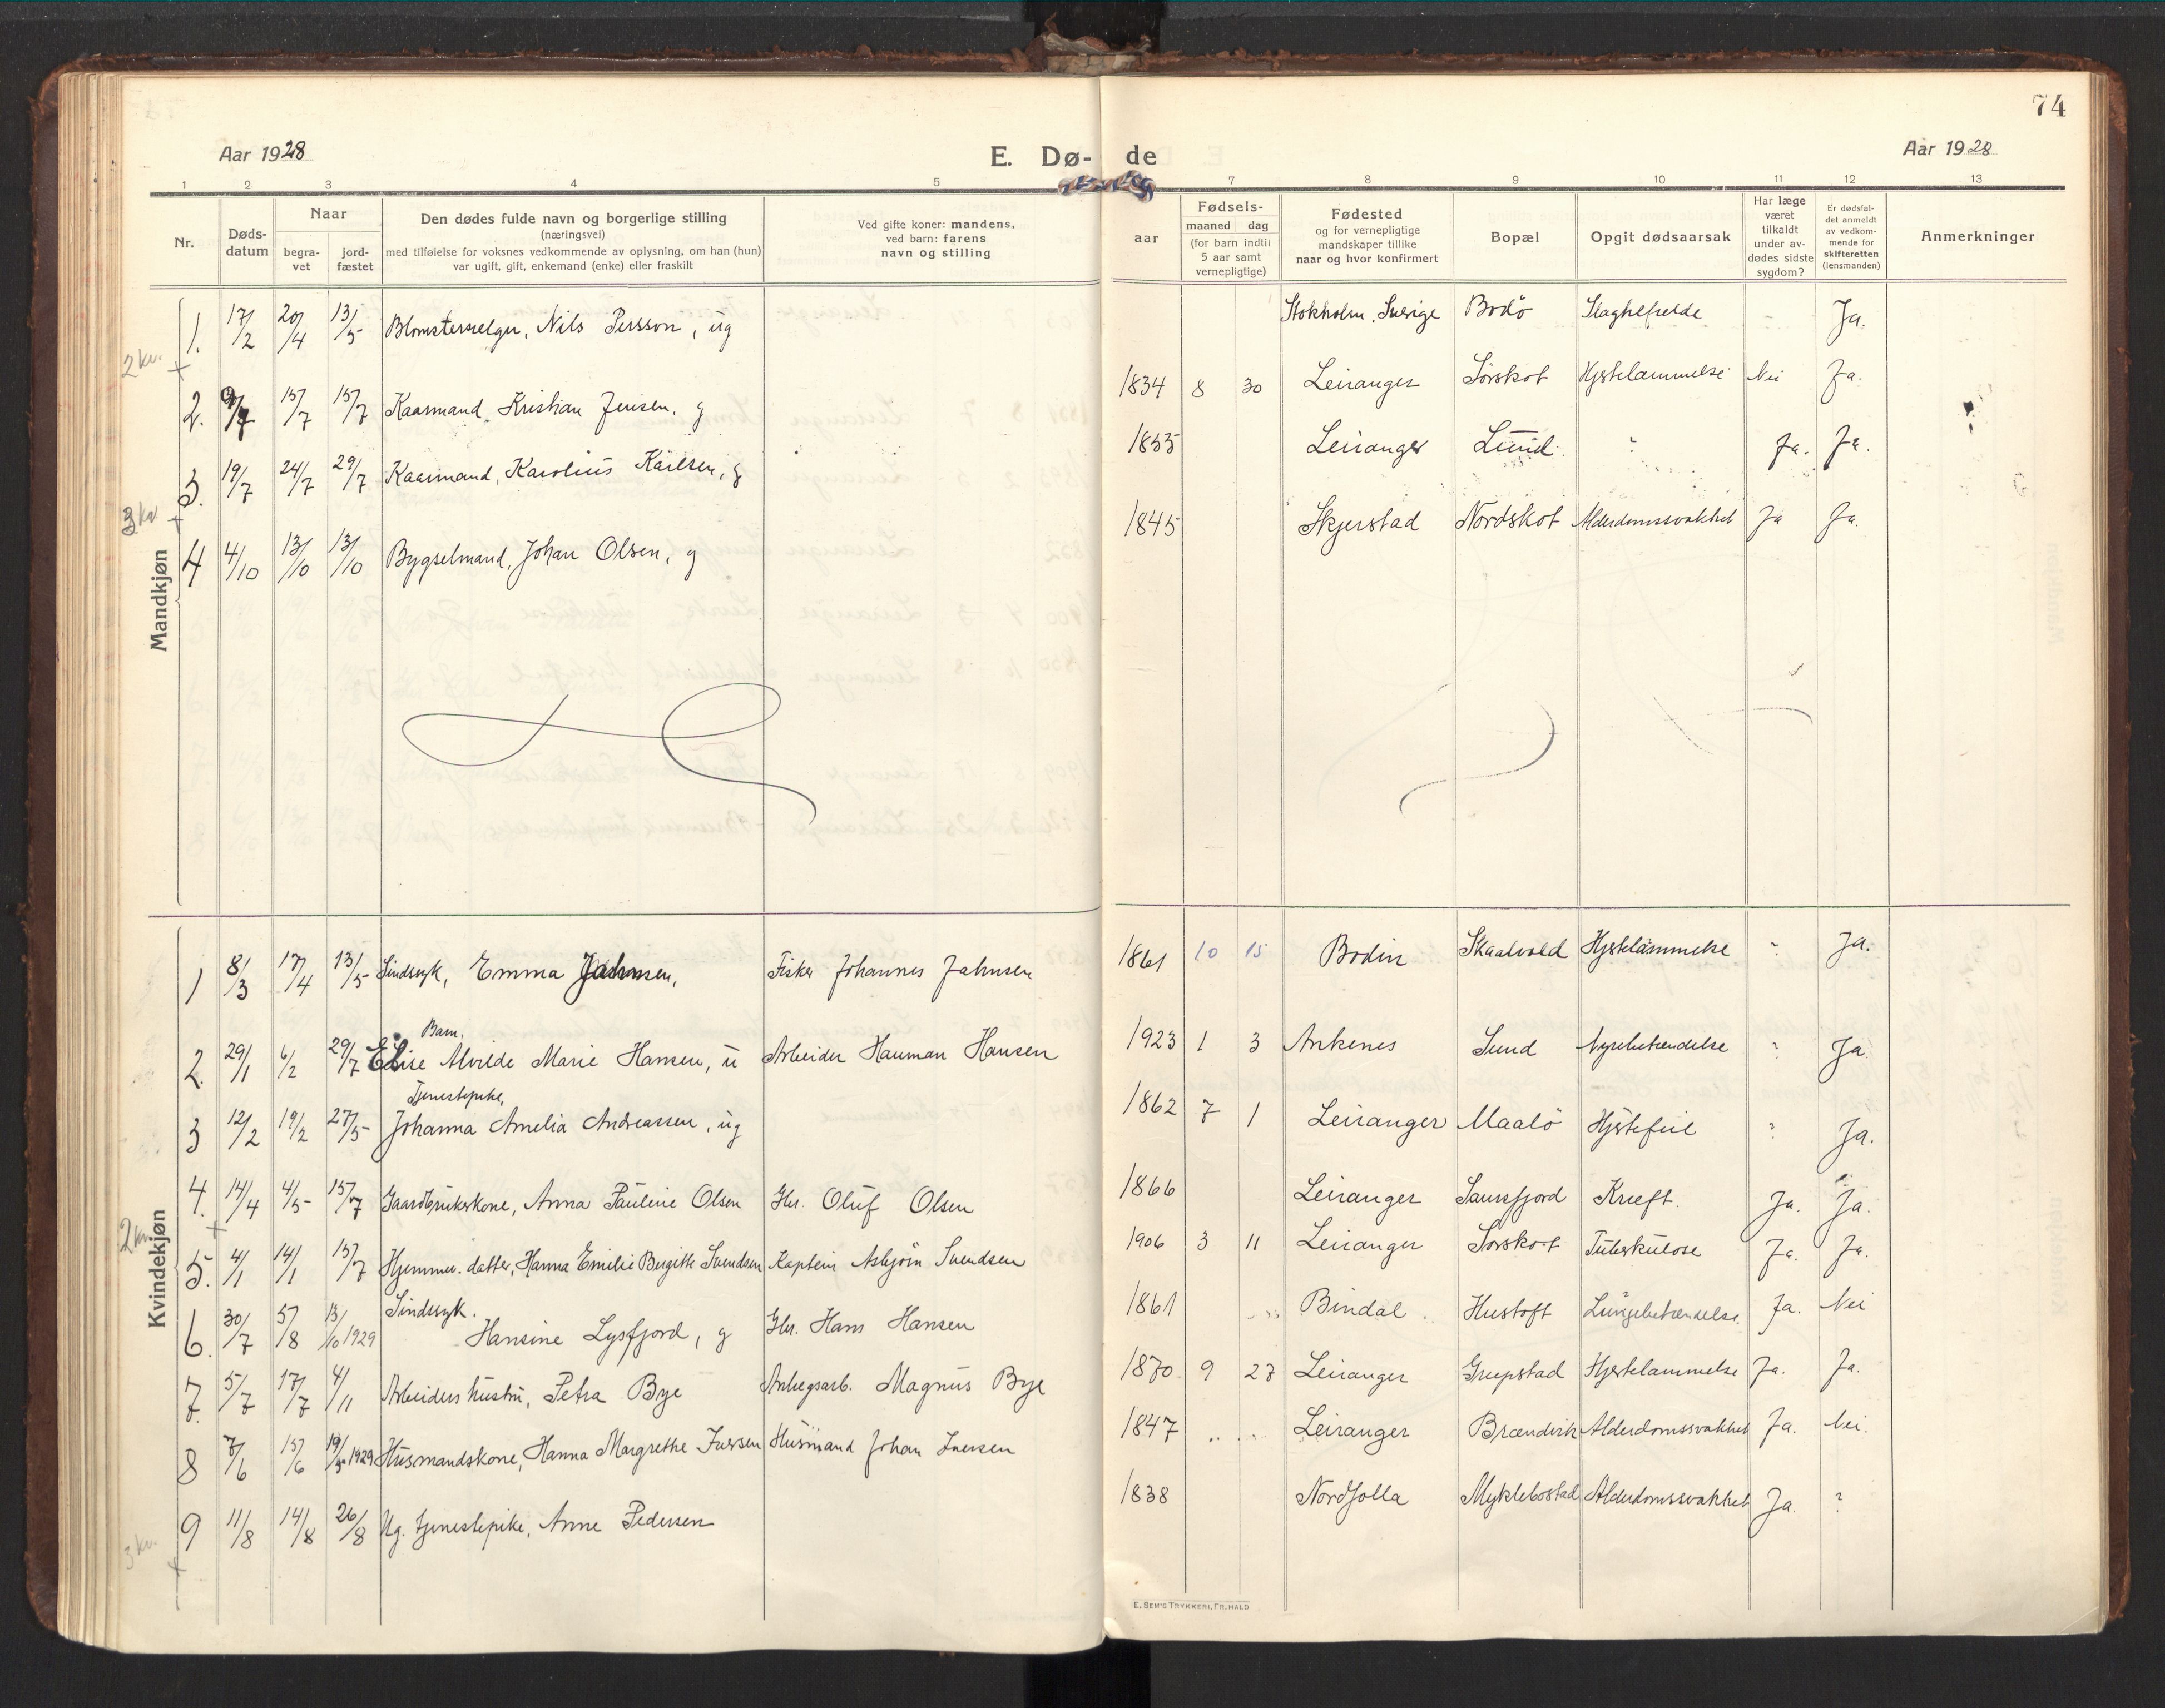 74
Aar 1928
E. Dø- de
Aar 1928
1 2 3 4 5 7 8 9 10 11 12 13
Nr.
Døds-
datum
Naar
begra-
vet
jord-
fæstet
Den dødes fulde navn og borgerlige stilling
(næringsvei)
med tilføielse for voksnes vedkommende av oplysning, om han (hun)
var ugift, gift, enkemand (enke) eller fraskilt
Ved gifte koner: mandens,
ved barn: farens
navn og stilling
aar
Fødsels-
maaned dag
(for barn indtil
5 aar samt
vernepligtige)
Fødested
og for vernepligtige
mandskaper tillike
naar og hvor konfirmert
Bopæl
Opgit dødsaarsak
Har læge
været
tilkaldt
under av-
dødes sidste
sygdom?
Er dødsfal-
det anmeldt
av vedkom-
mende for
skifteretten
(lensmanden)
Anmerkninger
Mandkjøn
1. 17/2 20/4 13/5 Blomsterselger, Nils Persson, ug Stokholm, Sverige Bodö Slaghelfelde - Ja.
2 kv.
2. 9/7 15/7 15/7 Kaarmand Kristian Jensen, g 1834 8 30 Leiranger Sörskot Hjertelammelse Nei Ja.
3. 19/7 24/7 29/7 Kaarmand, Karolius Karlsen, g 1855 Leiranger Lund " Ja. Ja.
3 kv
4 4/10 13/10 13/10 Bygselmand, Johan Olsen, g 1845 Skjerstad Nordskot Alderdomssvakhet Ja Ja.
Kvindekjøn
1 8/3 17/4 13/5 Sindsyk, Emma Jahnsen, Fisker Johannes Jahnsen 1861 10 15 Bodin Skaalvold Hjertelammelse " Ja.
Barn,
2. 29/1 6/2 29/7 Elise Alvilde Marie Hansen, u Arbeider Hauman Hansen 1923 1 3 Ankenes Sund Nyrebetændelse ? Ja.
Tjenestepike,
3 12/2 19/2 27/5 Johanna Amelia Andreassen, ug 1862 7 1 Leiranger Maalö Hjertefeil ? Ja.
4. 14/4 4/5 15/7 Gaardbrukerkone, Anna Pauline Olsen Gbr. Oluf Olsen 1866 Leiranger Saursfjord Kræft. Ja. Ja.
2 kv.
5. 4/1 14/1 15/7 Hjemmev. datter, Hanna Emilie Birgitte Svendsen Kaptein Asbjörn Svendsen 1906 3 11 Leiranger Sörskot Tuberkulose Ja. Ja.
Sindssyk.
6. 30/7 5/8 13/10 1929 Hansine Lysfjord, g Gbr. Hans Hansen 1861 Bindal Hustoft Lungebetændelse Ja. Nei
7. 5/7 17/7 4/11 Arbeiders hustru, Petra Bye Anlegsarb. Magnus Bye 1870 9 27 Leiranger Grepstad Hjertelammelse Ja. Ja.
8 7/6 15/6 19/5 1929 Husmandskone, Hanna Margrethe Iversen Husmand Johan Iversen 1847 Leiranger Brændvik Alderdomssvakhet Ja. Nei.
9 11/8 14/8 26/8 Ug. tjenestepike, Anne Pedersen 1838 Nordfolla Myklebostad Alderdomssvakhet Ja. ?
3 kv.
E. SEM'S TRYKKERI, FR.HALD